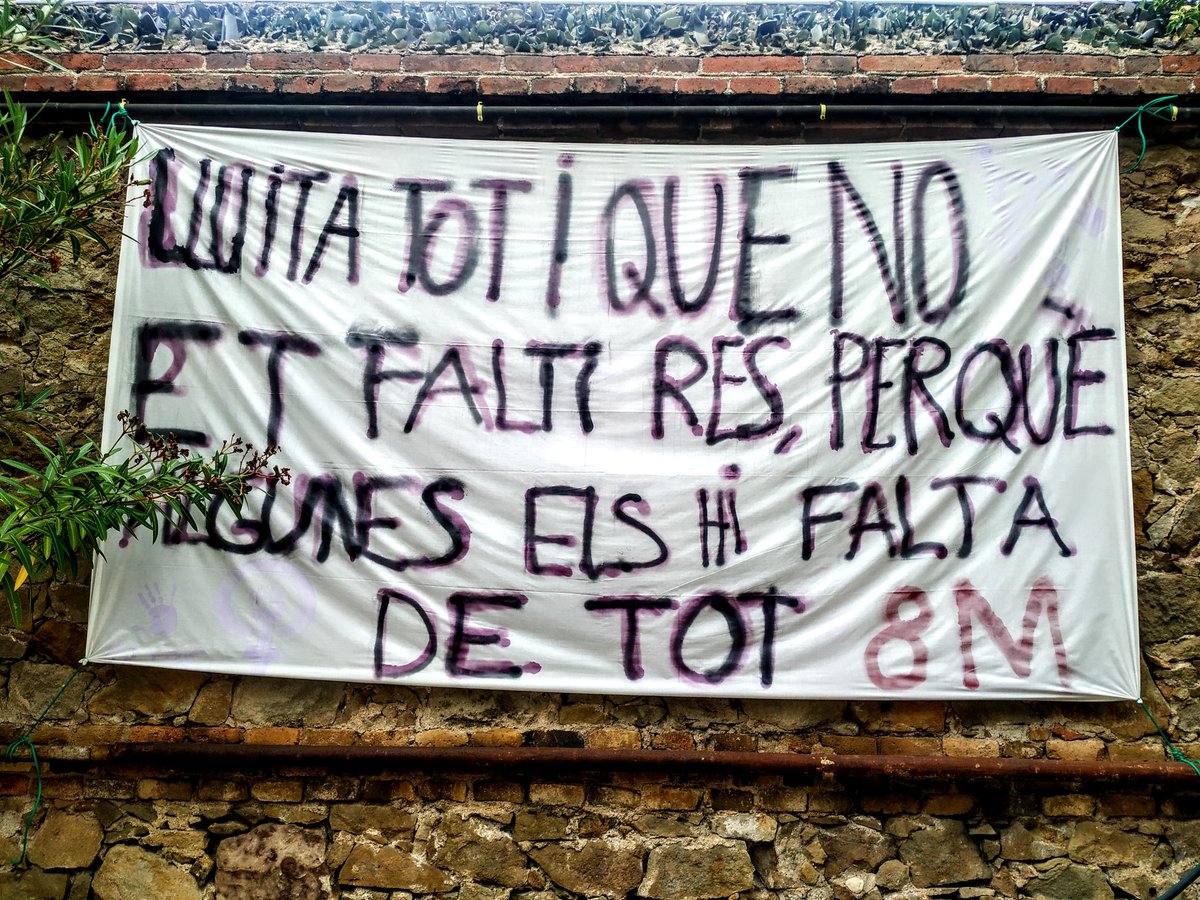 LLUITA TOT i QUE NO
ET FALTI RES, PERQUÈ
ALGUNES ELS HI FALTA
DE TOT 8M